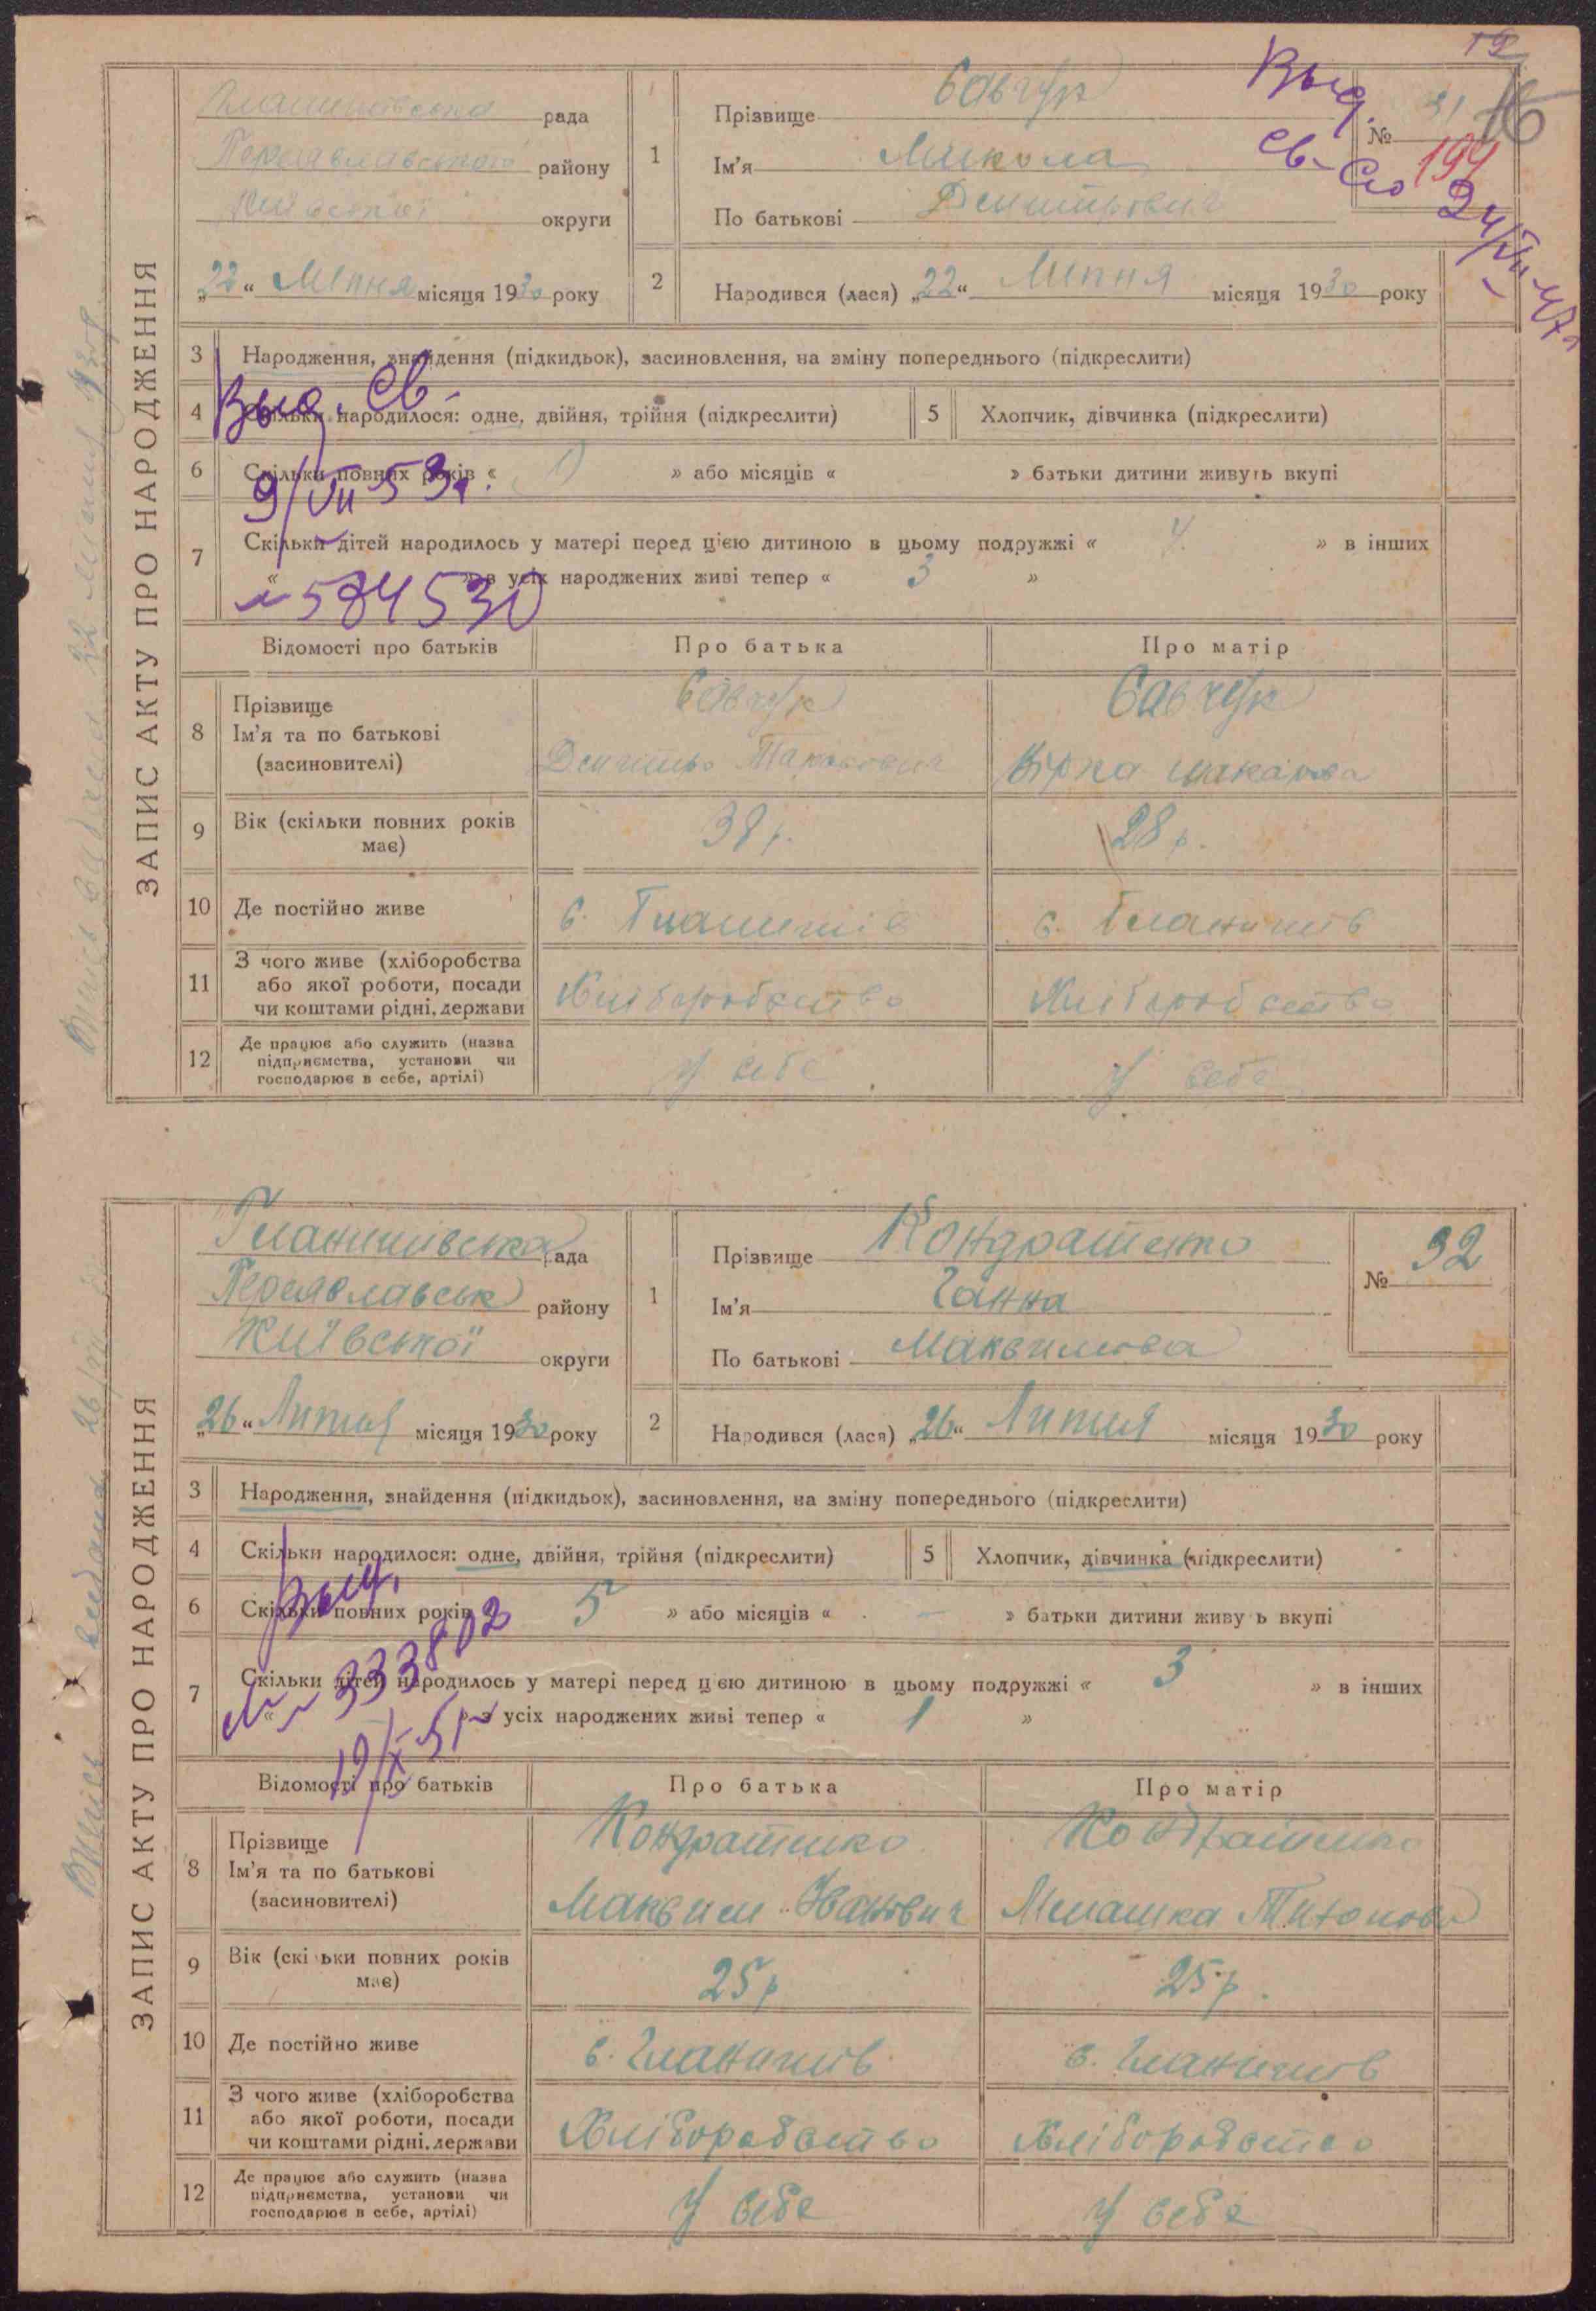 12
16
Выд.
св-во
24/VII 47 г
194
ЗАПИС АКТУ ПРО НАРОДЖЕННЯ
рада
Переяславського району
Київської округи
„22“ Липня місяця 1930 року
1
Прізвище Савчук
Ім'я Микола
По батькові Дмитрович
№ 31
2
Народився (лася) „22“ Липня місяця 1930 року
3 Народження, знайдення (підкидьок), засиновлення, на зміну попереднього (підкреслити)
4 Скільки народилося: одне, двійня, трійня (підкреслити) 5 Хлопчик, дівчинка (підкреслити)
Выд. Св-
6 Скільки повних років « » або місяців « » батьки дитини живуть вкупі
9/VII 53 г.
7 Скільки дітей народилось у матері перед цією дитиною в цьому подружжі « 4 » в інших
« » з усіх народжених живі тепер « 3 »
584530
Відомості про батьків Про батька Про матір
8 Прізвище Ім'я та по батькові (засиновителі)
Савчук Савчук
Дмитро
9 Вік (скільки повних років має) 38 р. 28 р.
10 Де постійно живе с. Гланишів с. Гланишів
11 З чого живе (хліборобства або якої роботи, посади чи коштами рідні, держави Хліборобство Хліборобство
12 Де працює або служить (назва підприємства, установи чи господарює в себе, артілі) У себе У себе
ЗАПИС АКТУ ПРО НАРОДЖЕННЯ
Гланишівська рада
Переяславськ району
Київської округи
„26“ Липня місяця 1930 року
1
Прізвище Кондратенко
Ім'я Ганна
По батькові Максимова
№ 32
2
Народився (лася) „26“ Липня місяця 1930 року
3 Народження, знайдення (підкидьок), засиновлення, на зміну попереднього (підкреслити)
4 Скільки народилося: одне, двійня, трійня (підкреслити) 5 Хлопчик, дівчинка (підкреслити)
Выд.
6 Скільки повних років « 5 » або місяців « — » батьки дитини живуть вкупі
№ 333802
7 Скільки дітей народилось у матері перед цією дитиною в цьому подружжі « 3 » в інших
« » з усіх народжених живі тепер « 1 »
19/X 51
Відомості про батьків Про батька Про матір
8 Прізвище Ім'я та по батькові (засиновителі)
Кондратенко Кондратенко
Максим Іванович Мелашка
9 Вік (скільки повних років має) 25 р 25 р.
10 Де постійно живе с. Гланишів с. Гланишів
11 З чого живе (хліборобства або якої роботи, посади чи коштами рідні, держави Хліборобство Хліборобство
12 Де працює або служить (назва підприємства, установи чи господарює в себе, артілі) У себе У себе